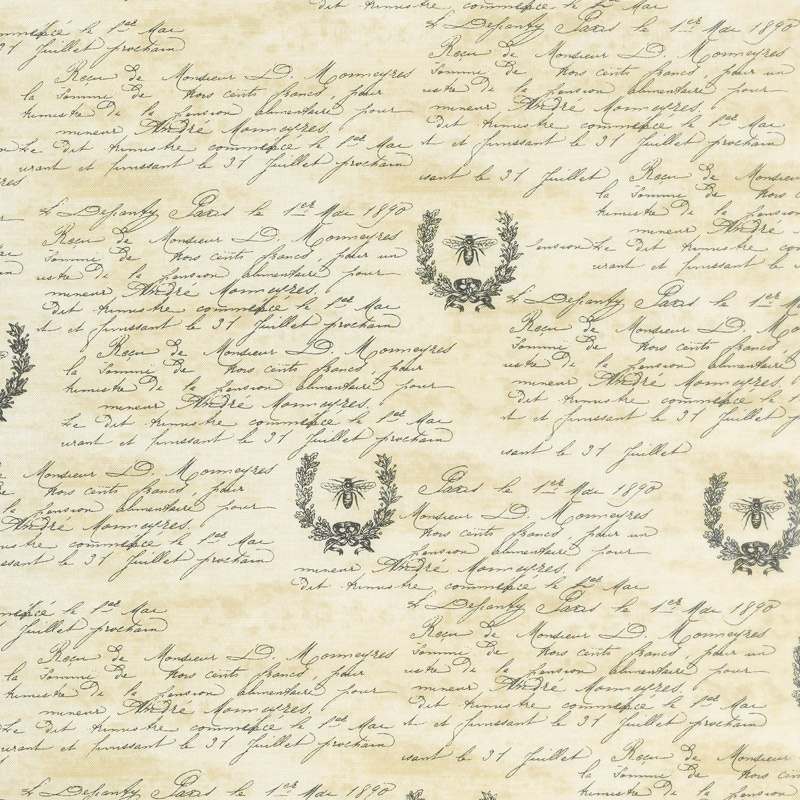 commence le 1er Mai
31 Juillet prochain
Le Defpanty Paris le 1er Mai 1890
Recu de Monsieur LD. Monmeyres
la somme de trois cents francs, pour
trimestre De la pension alimentaire pour
mineur André Monmeyres.
Le dit trimestre commence le 1er Mai
urant et finissant le 31 Juillet prochain
Recu de Monsieur LD. Monmeyres
somme de trois cents francs, pour un
De la pension alimentaire pour
mineur André Monmeyres.
dit trimestre commence le 1er Mai
et finissant le 31 Juillet prochain
ssant le 31 Juillet
Recu de Monsieur
la somme de trois
trimestre De la pension
mineur André
pension Le dit trimestre
urant et finissant le
Le Defpanty Paris le 1er Mai 1890
Recu de Monsieur LD. Monmeyres
somme de trois cents francs, pour un
De la pension alimentaire pour
mineur André Monmeyres.
dit trimestre commence le 1er Mai
et finissant le 31 Juillet prochain
Recu de Monsieur LD. Monmeyres
la somme de trois cents francs, pour
trimestre De la pension alimentaire pour
mineur André Monmeyres.
Le dit trimestre commence le 1er Mai
urant et finissant le 31 Juillet prochain
Le Defpanty Paris le 1er Mai
Recu de Monsieur LD.
somme de trois cents francs
De la pension alimentaire
mineur André Monmeyres.
dit trimestre commence le 1er
et finissant le 31 Juillet
ssant le 31 Juillet
Monsieur LD. Monmeyres
trois cents francs, pour
pension alimentaire pour
André Monmeyres.
commence le 1er Mai
ssant le 31 Juillet prochain
Paris le 1er Mai 1890
Monsieur LD. Monmeyres
trois cents francs, pour un
pension alimentaire pour
mineur André Monmeyres.
dit trimestre commence le 1er Mai
commence le 1er Mai
Juillet prochain
Recu de Monsieur LD. Monmeyres
la somme de trois cents francs, pour
trimestre De la pension alimentaire pour
mineur André Monmeyres.
Le dit trimestre commence le 1er Mai
urant et finissant le 31 Juillet prochain
Le Defpanty Paris le 1er Mai 1890
Recu de Monsieur LD. Monmeyres
somme de trois cents francs, pour un
De la pension alimentaire pour
mineur André Monmeyres.
dit trimestre commence le 1er Mai
et finissant le 31 Juillet prochain
ssant le 31 Juillet
Recu de Monsieur
la somme de trois cents
trimestre De la pension
Le Defpanty Paris le 1er Mai 1890